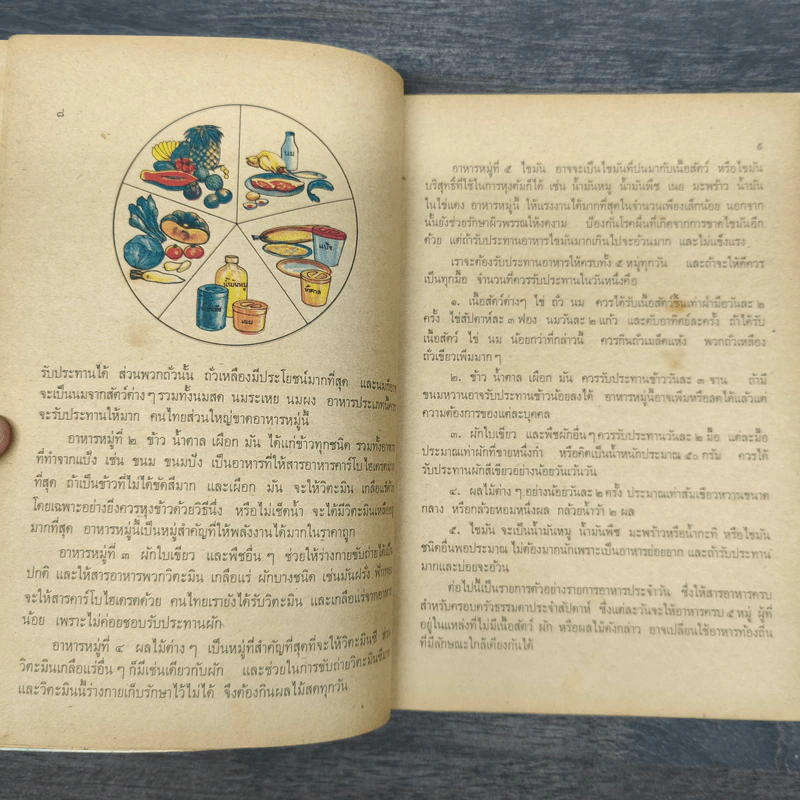 ๘
นม
แป้ง
น้ำตาล
น้ำมันหมู
เนย
รับประทานได้ ส่วนพวกถั่วนั้น ถั่วเหลืองมีประโยชน์มากที่สุด และนมก็
จะเป็นนมจากสัตว์ต่าง ๆ รวมทั้งนมสด นมระเหย นมผง อาหารประเภทนี้ควร
จะรับประทานให้มาก คนไทยส่วนใหญ่ขาดอาหารหมู่นี้
อาหารหมู่ที่ ๒ ข้าว น้ำตาล เผือก มัน ได้แก่ข้าวทุกชนิด รวมทั้งอาหาร
ที่ทำจากแป้ง เช่น ขนม ขนมปัง เป็นอาหารที่ให้สารอาหารคาร์โบไฮเดรตมาก
ที่สุด ถ้าเป็นข้าวที่ไม่ได้ขัดสีมาก และเผือก มัน จะให้วิตะมิน เกลือแร่ด้วย
โดยเฉพาะอย่างยิ่งควรหุงข้าวด้วยวิธีนึ่ง หรือไม่เช็ดน้ำ จะได้วิตะมินเหลืออยู่
มากที่สุด อาหารหมู่นี้เป็นหมู่สำคัญที่ให้พลังงานได้มากในราคาถูก
อาหารหมู่ที่ ๓ ผักใบเขียว และพืชอื่น ๆ ช่วยให้ร่างกายขับถ่ายได้เป็น
ปกติ และให้สารอาหารพวกวิตะมิน เกลือแร่ ผักบางชนิด เช่นมันฝรั่ง ฟักทอง
จะให้สารคาร์โบไฮเดรตด้วย คนไทยเรายังได้รับวิตะมิน และเกลือแร่จากอาหาร
น้อย เพราะไม่ค่อยชอบรับประทานผัก
อาหารหมู่ที่ ๔ ผลไม้ต่าง ๆ เป็นหมู่ที่สำคัญที่สุดที่จะให้วิตะมินซี ส่วน
วิตะมินเกลือแร่อื่น ๆ ก็มีเช่นเดียวกับผัก และช่วยในการขับถ่ายวิตะมินซีมาก
และวิตะมินนี้ร่างกายเก็บรักษาไว้ไม่ได้ จึงต้องกินผลไม้สดทุกวัน
๙
อาหารหมู่ที่ ๕ ไขมัน อาจจะเป็นไขมันที่ปนมากับเนื้อสัตว์ หรือไขมัน
บริสุทธิ์ที่ใช้ในการหุงต้มก็ได้ เช่น น้ำมันหมู น้ำมันพืช เนย มะพร้าว น้ำมัน
ในไข่แดง อาหารหมู่นี้ ให้แรงงานได้มากที่สุดในจำนวนเพียงเล็กน้อย นอกจาก
นั้นยังช่วยรักษาผิวพรรณให้งดงาม ป้องกันโรคผื่นที่เกิดจากการขาดไขมันอีก
ด้วย แต่ถ้ารับประทานอาหารไขมันมากเกินไปจะอ้วนมาก และไม่แข็งแรง
เราจะต้องรับประทานอาหารให้ครบทั้ง ๕ หมู่ทุกวัน และถ้าจะให้ดีควร
เป็นทุกมื้อ จำนวนที่ควรรับประทานในวันหนึ่งคือ
๑. เนื้อสัตว์ต่างๆ ไข่ ถั่ว นม ควรได้รับเนื้อสัตว์ชิ้นเท่าฝ่ามือวันละ ๒
ครั้ง ไข่สัปดาห์ละ ๓ ฟอง นมวันละ ๒ แก้ว และตับอาทิตย์ละครั้ง ถ้าได้รับ
เนื้อสัตว์ ไข่ นม น้อยกว่าที่กล่าวนี้ ควรกินถั่วเมล็ดแห้ง พวกถั่วเหลือง
ถั่วเขียวเพิ่มมาก ๆ
๒. ข้าว น้ำตาล เผือก มัน ควรรับประทานข้าววันละ ๓ จาน ถ้ามี
ขนมหวานอาจจะรับประทานข้าวน้อยลงได้ อาหารหมู่นี้อาจเพิ่มหรือลดได้แล้วแต่
ความต้องการของแต่ละบุคคล
๓. ผักใบเขียว และพืชผักอื่น ๆ ควรรับประทานวันละ ๒ มื้อ แต่ละมื้อ
ประมาณเท่าผักที่ขายหนึ่งกำ หรือคิดเป็นน้ำหนักประมาณ ๕๐ กรัม ควรได้
รับประทานผักสีเขียวอย่างน้อยวันเว้นวัน
๔. ผลไม้ต่าง ๆ อย่างน้อยวันละ ๒ ครั้ง ประมาณเท่าส้มเขียวหวานขนาด
กลาง หรือกล้วยหอมหนึ่งผล กล้วยน้ำว้า ๒ ผล
๕. ไขมัน จะเป็นน้ำมันหมู น้ำมันพืช มะพร้าวหรือน้ำกะทิ หรือไขมัน
ชนิดอื่นพอประมาณ ไม่ต้องมากนักเพราะเป็นอาหารย่อยยาก และถ้ารับประทาน
มากและบ่อยจะอ้วน
ต่อไปนี้เป็นรายการตัวอย่างรายการอาหารประจำวัน ซึ่งให้สารอาหารครบ
สำหรับครอบครัวธรรมดาประจำสัปดาห์ ซึ่งแต่ละวันจะให้อาหารครบ ๕ หมู่ ผู้ที่
อยู่ในแหล่งที่ไม่มีเนื้อสัตว์ ผัก หรือผลไม้ดังกล่าว อาจเปลี่ยนใช้อาหารท้องถิ่น
ที่มีลักษณะใกล้เคียงกันได้